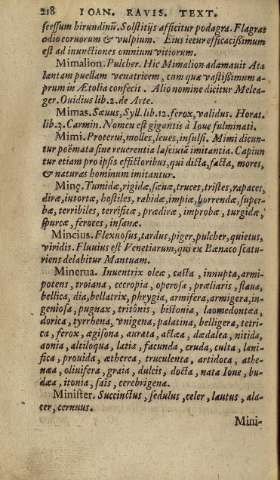 218 IOAN. RAVIS. TEXT.
scessum hirundinũ. Solstitijs afficitur podagra. Flagrat
odio coruorum & vulpium. Eius iecur efficacissimum
est ad inunctiones omnium vitiorum.
Mimalion. Pulcher. Hic Mimalion adamauit Ata
lantam puellam venatricem, cum qua vastissimum a-
prum in Ætolia confecit. Alio nomine dicitur Melea-
ger. Ouidius lib. 2. de Arte.
Mimas. Sæuus, Syll. lib. 12. ferox, validus. Horat.
lib. 3. Carmin. Nomen est gigantis à Ioue fulminati.
Mimi. Proterui, molles, leues, insulsi. Mimi dicun-
tur poëmata siue reuerentia lasciuiã imitantia. Capiun
tur etiam pro ipsis effictoribus, qui dicta, facta, mores,
& naturas hominum imitantur.
Minę. Tumidæ, rigidæ, sæuæ, truces, tristes, rapaces,
diræ, iutortæ, hostiles, rabidæ, impiæ, horrendæ, super-
bæ, terribiles, terrificæ, prædiræ, improbæ, turgidæ,
spurcæ, feroces, insanæ.
Mincius. Flexuosus, tardus, piger, pulcher, quietus,
viridis. Fluuius est Venetiarum, qui ex Bænaco scatu-
riens delabitur Mantuam.
Minerua. Inuentrix oleæ, casta, innupta, armi-
potens, troiana, cecropia, operosa, præliaris, flaua,
bellica, dia, bellatrix, phrygia, armifera, armigera, in-
geniosa, pugnax, tritonis, bistonia, laomedontæa,
dorica, tyrrhena, vnigena, palatina, belligera, tetri-
ca, ferox, ægisona, aurata, actæa, dædalea, nitida,
aonia, altiloqua, latia, facunda, cruda, culta, lani-
fica, prouida, ætherea, truculenta, artidoca, athe-
næa, oliuifera, graia, dulcis, docta, nata Ione, bu-
dæa, itonia, sais, cerebrigena.
Minister. Succinctus, sedulus, celer, lautus, ala-
cer, cernuus.
Mini-